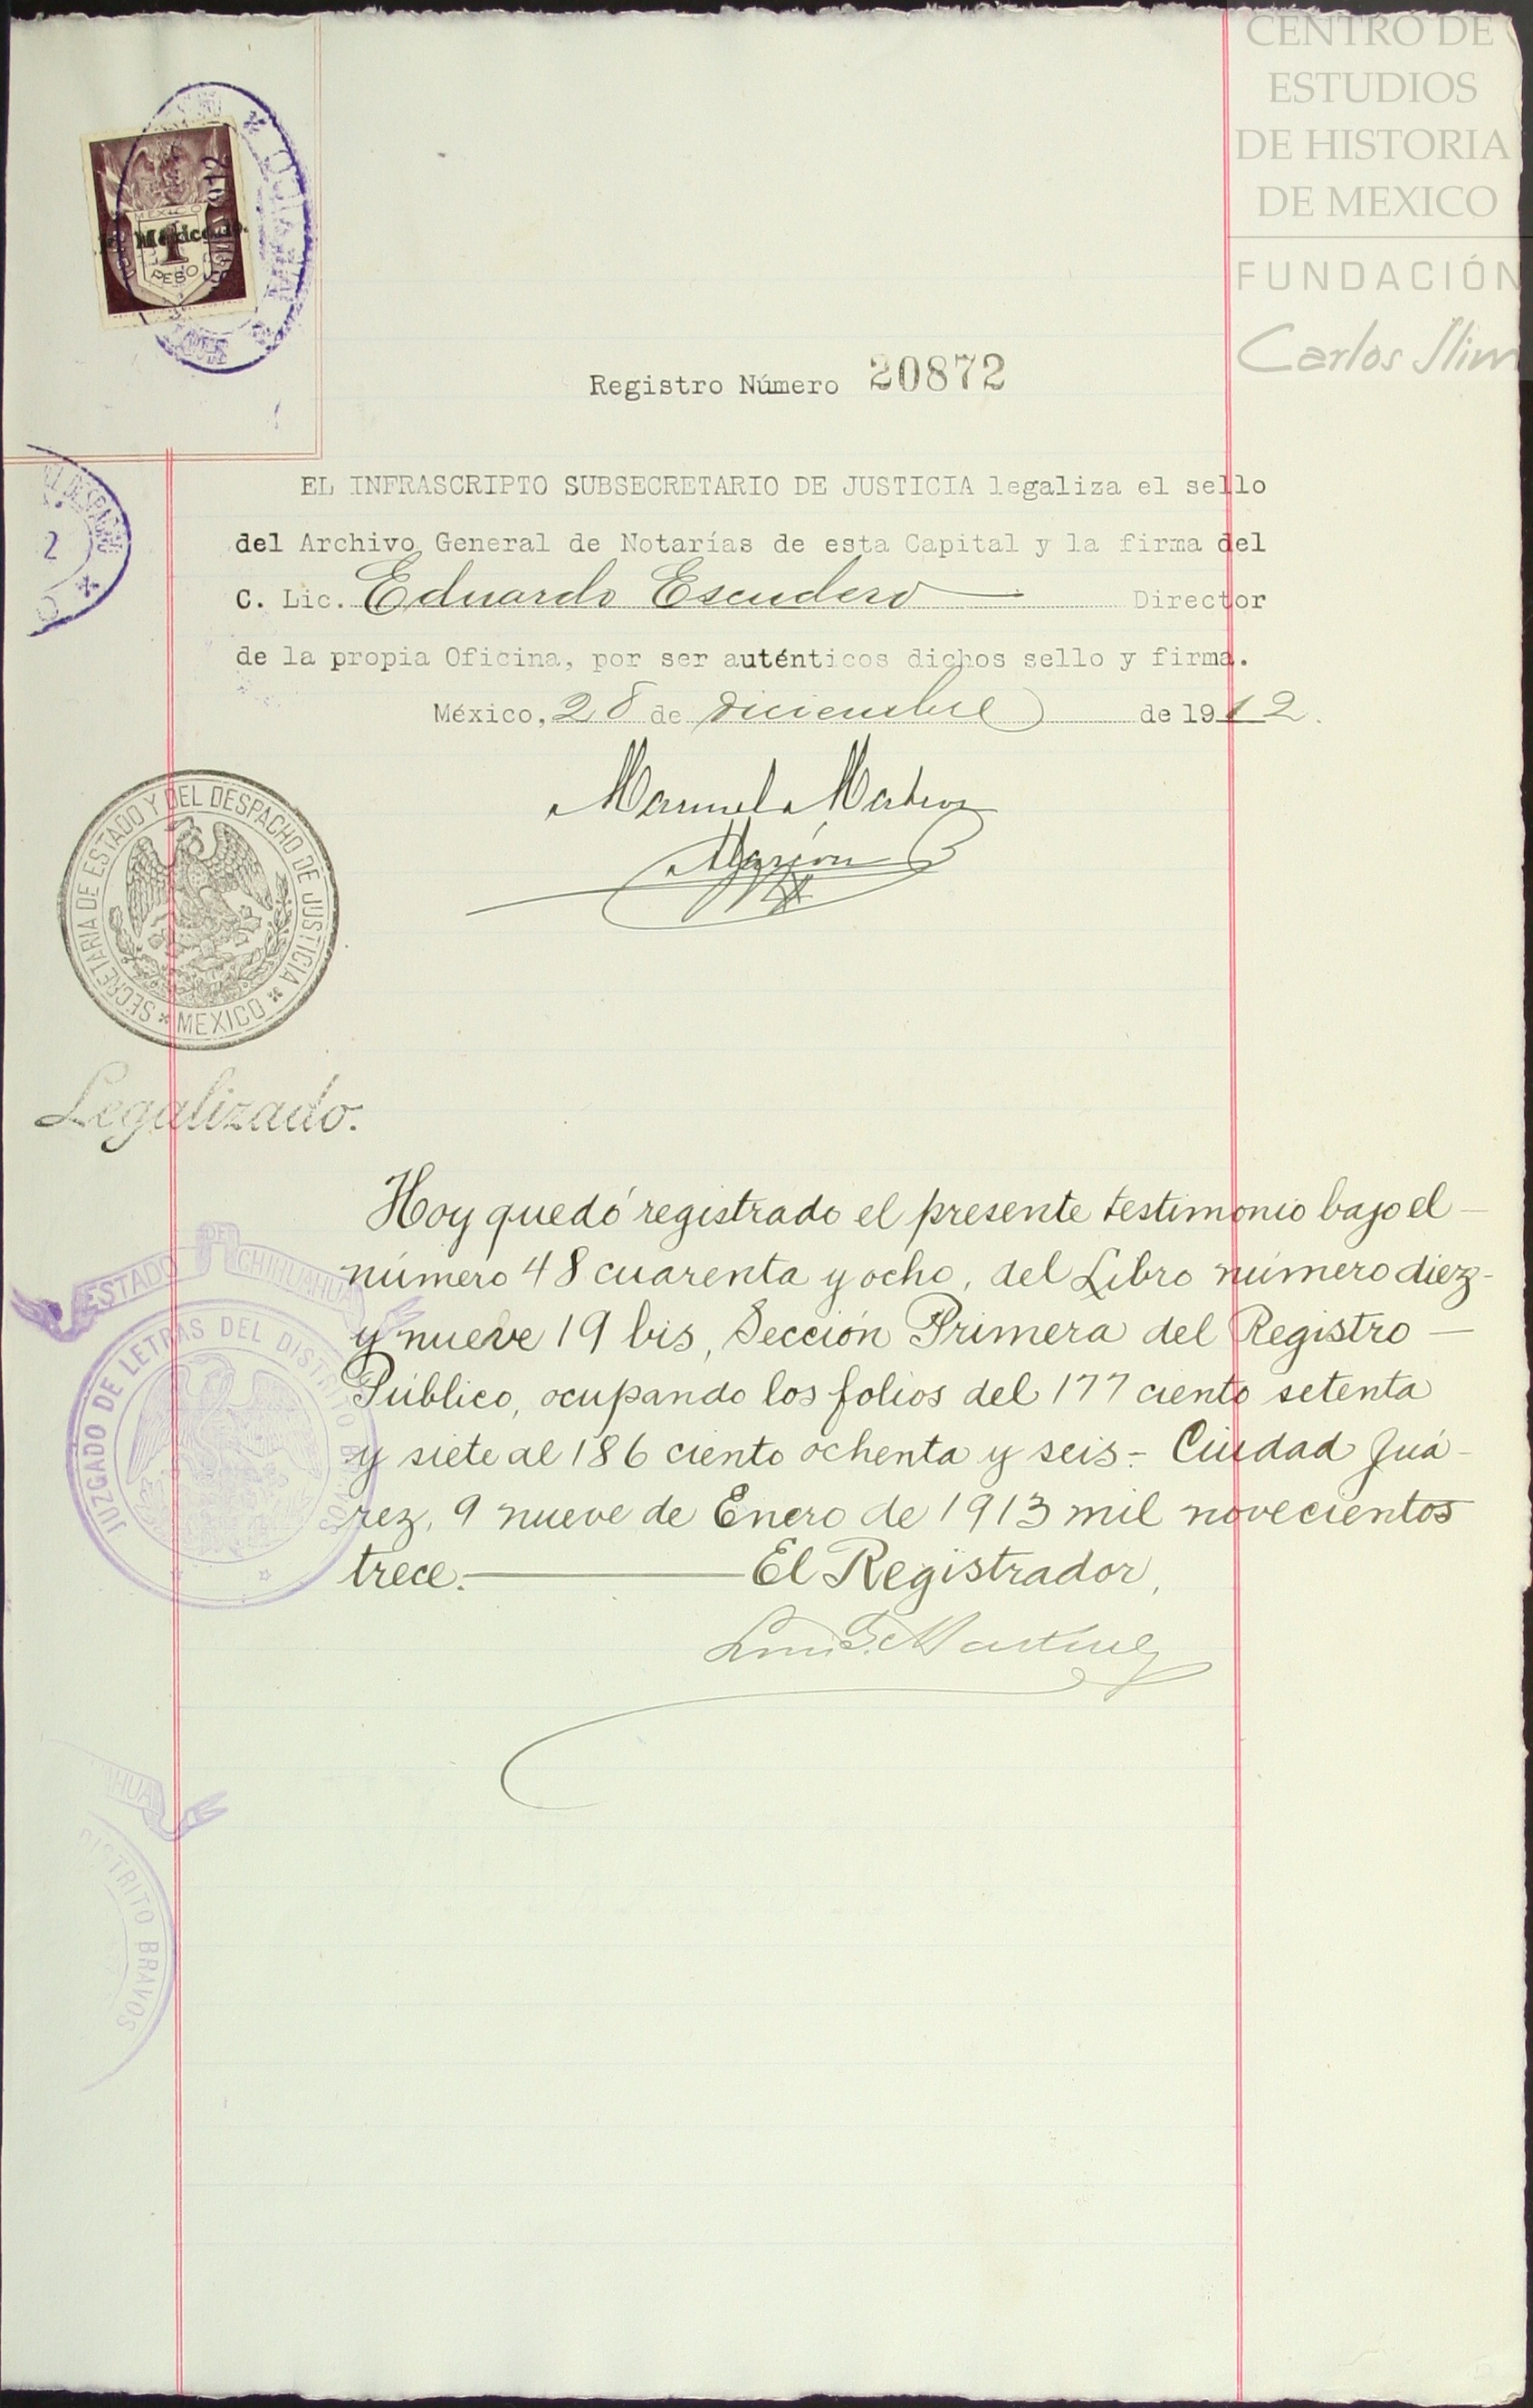 CENTRO DE
ESTUDIOS
DE HISTORIA
DE MEXICO
FUNDACIÓN
Carlos Slim
MEXICO
1
PESO
Registro Número 20872
EL INFRASCRIPTO SUBSECRETARIO DE JUSTICIA legaliza el sello
del Archivo General de Notarías de esta Capital y la firma del
C. Lic. Eduardo Escudero Director
de la propia Oficina, por ser auténticos dichos sello y firma.
México, 28 de diciembre de 1912.
Manuel Mateos
Alarcón
SECRETARIA DE ESTADO Y DEL DESPACHO DE JUSTICIA * MEXICO *
Legalizado.
Hoy quedó registrado el presente testimonio bajo el
número 48 cuarenta y ocho, del Libro número diez-
y nueve 19 bis, Sección Primera del Registro
Público, ocupando los folios del 177 ciento setenta
y siete al 186 ciento ochenta y seis.- Ciudad Juá-
rez, 9 nueve de Enero de 1913 mil novecientos
trece. El Registrador,
Luis G. Martínez
ESTADO DE CHIHUAHUA
JUZGADO DE LETRAS DEL DISTRITO BRAVOS
HUA
DISTRITO BRAVOS